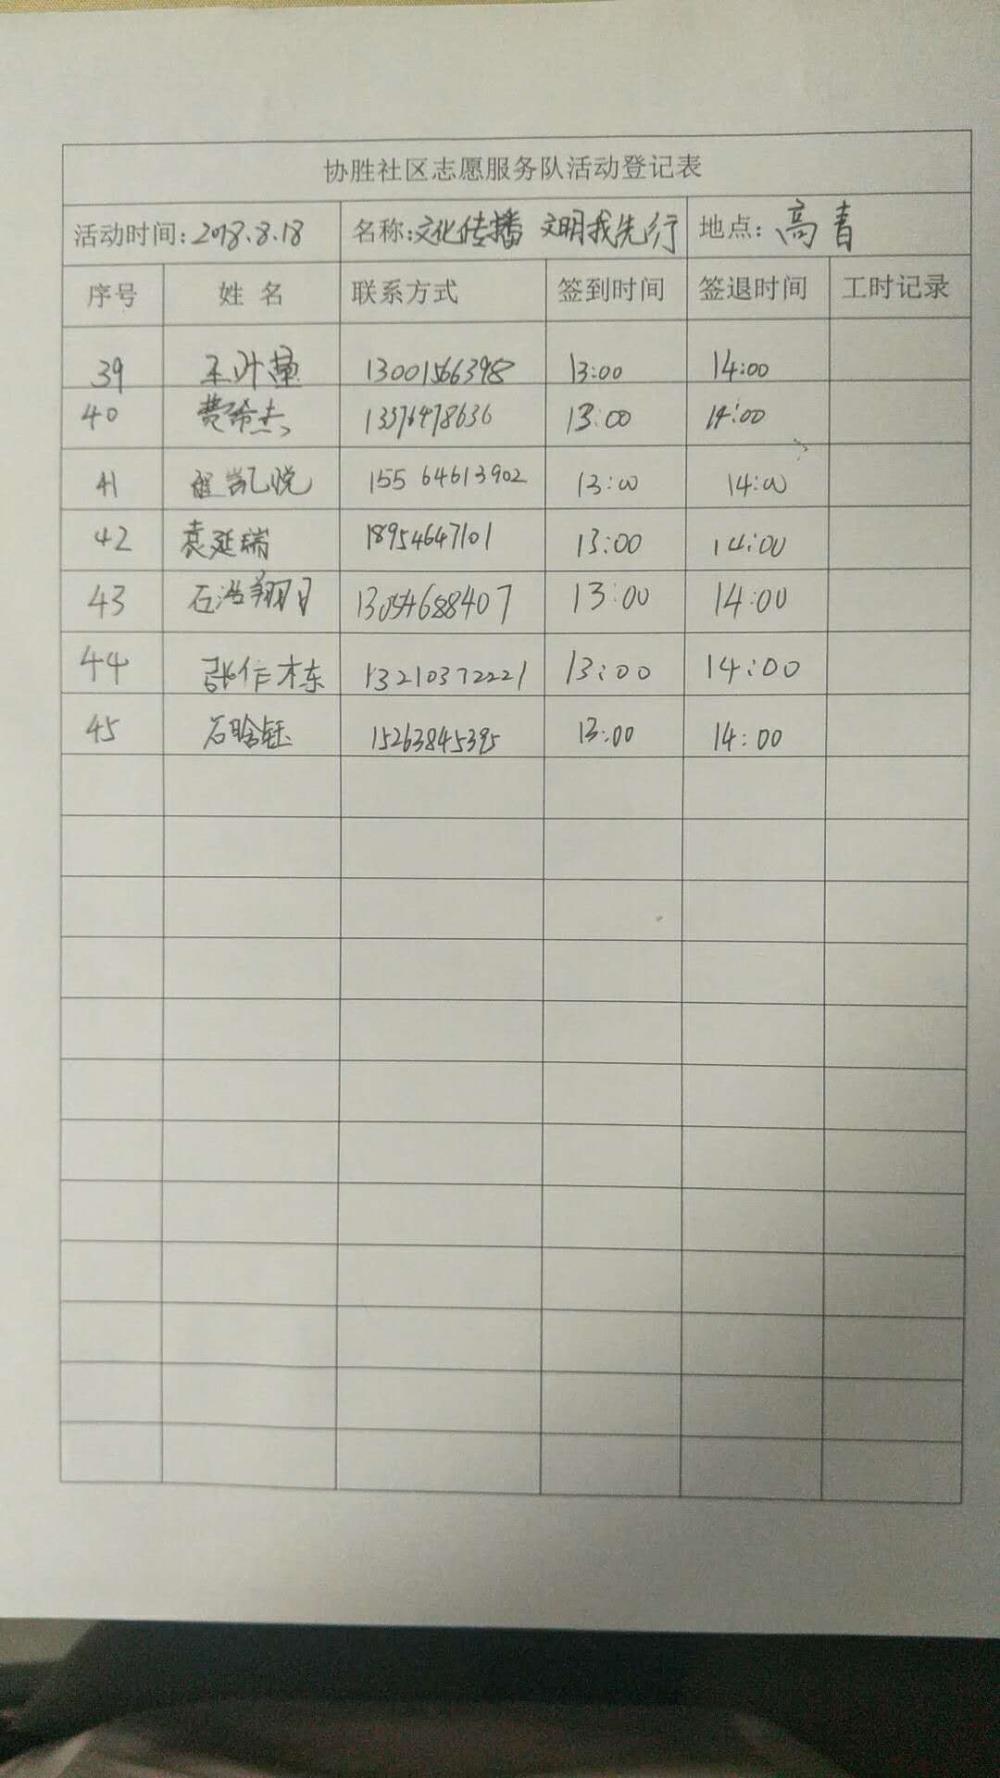 协胜社区志愿服务队活动登记表
活动时间: 2018.8.18 名称: 文化传播 文明我先行 地点: 高青
序号 姓名 联系方式 签到时间 签退时间 工时记录
39 13001566398 13:00 14:00
40 费希杰 13576478636 13:00 14:00
41 程凯悦 155 64613902 13:00 14:00
42 袁延瑞 18954647101 13:00 14:00
43 石浩翔 13054688407 13:00 14:00
44 张作栋 13210372221 13:00 14:00
45 石晗钰 15263845395 13:00 14:00